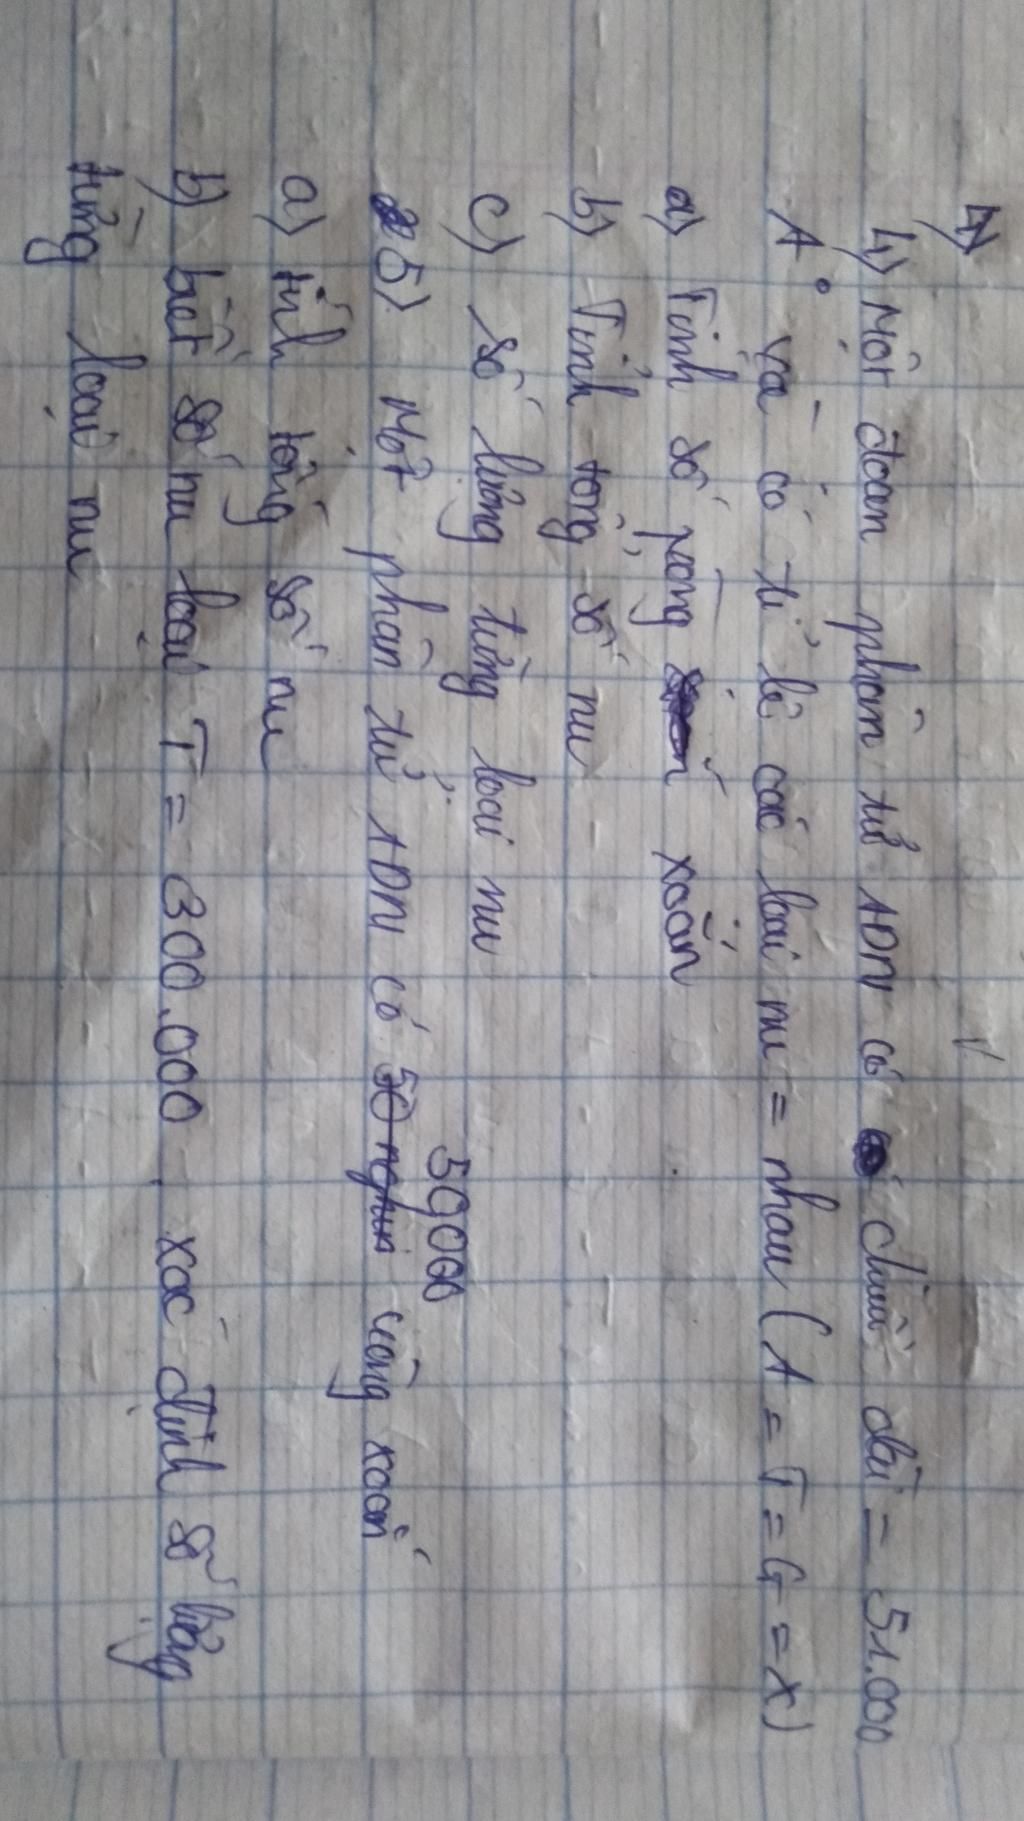 4)
4) Một đoạn phân tử ADN có chiều dài = 51.000
A° và có tỉ lệ các loại nu = nhau (A = T = G = X)
a) Tính số vòng xoắn
b) Tính tổng số nu
c) số lượng từng loại nu
50000
5) Một phân tử ADN có 50 nghìn vòng xoắn
a) tính tổng số nu
b) biết số nu loại T = 300.000. xác định số lượng
từng loại nu